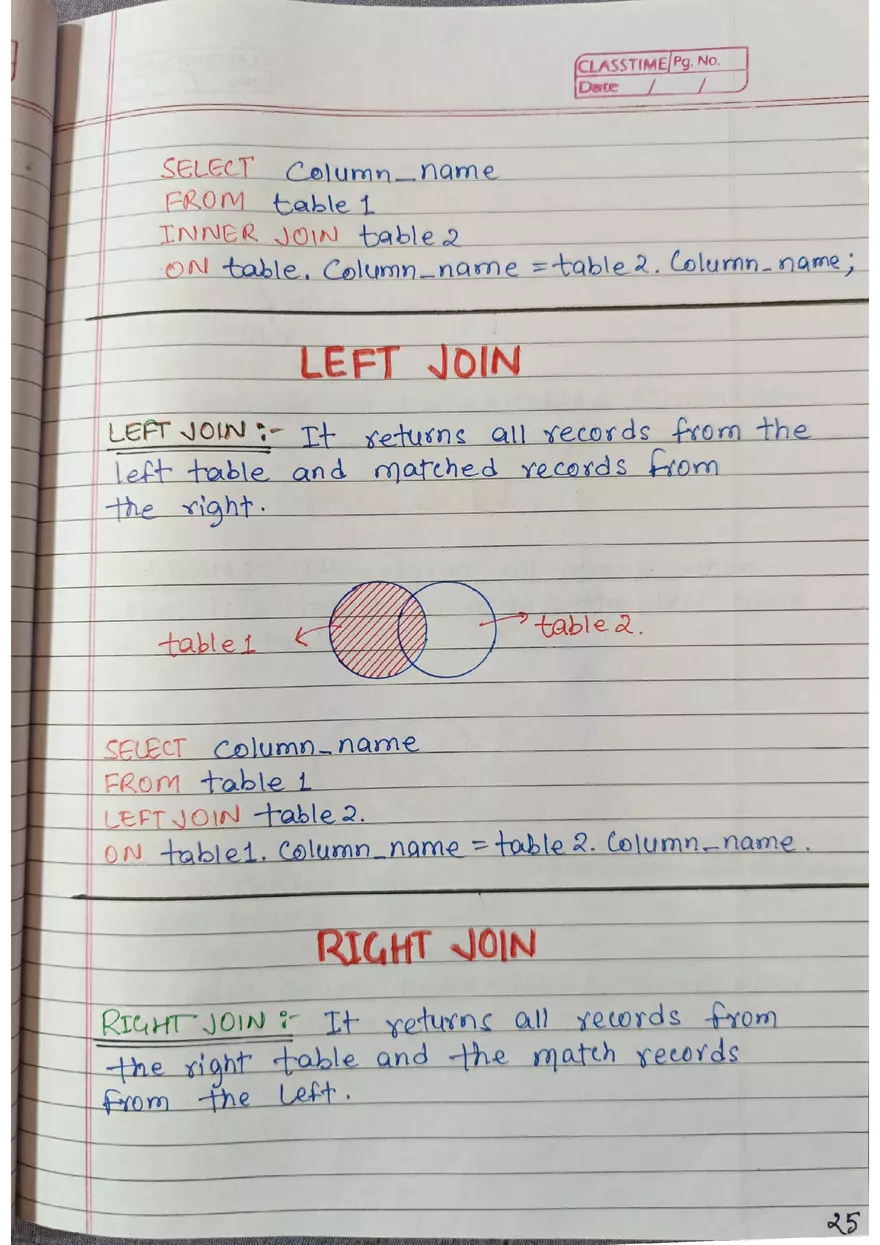 CLASSTIME Pg. No.
Date / /
SELECT Column_name
FROM table 1
INNER JOIN table 2
ON table. Column_name = table 2. Column_name;
LEFT JOIN
LEFT JOIN :- It returns all records from the
left table and matched records from
the right.
table 1 table 2.
SELECT Column_name
FROM table 1
LEFT JOIN table 2.
ON table1. Column_name = table 2. Column_name.
RIGHT JOIN
RIGHT JOIN :- It returns all records from
the right table and the match records
from the left.
25